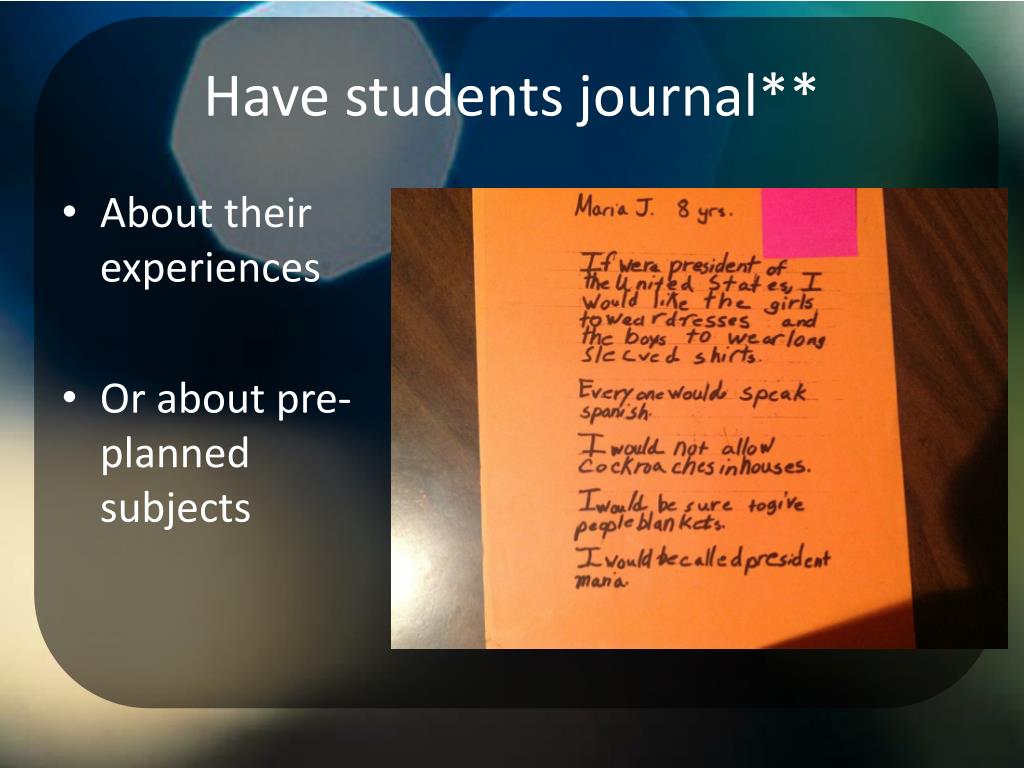 Have students journal**
• About their
experiences
• Or about pre-
planned
subjects
Maria J. 8 yrs.
If were president of
the United States, I
would like the girls
to wear dresses and
the boys to wear long
sleeved shirts.
Everyone would speak
spanish.
I would not allow
Cockroaches in houses.
I would be sure to give
people blankets.
I would be called president
maria.